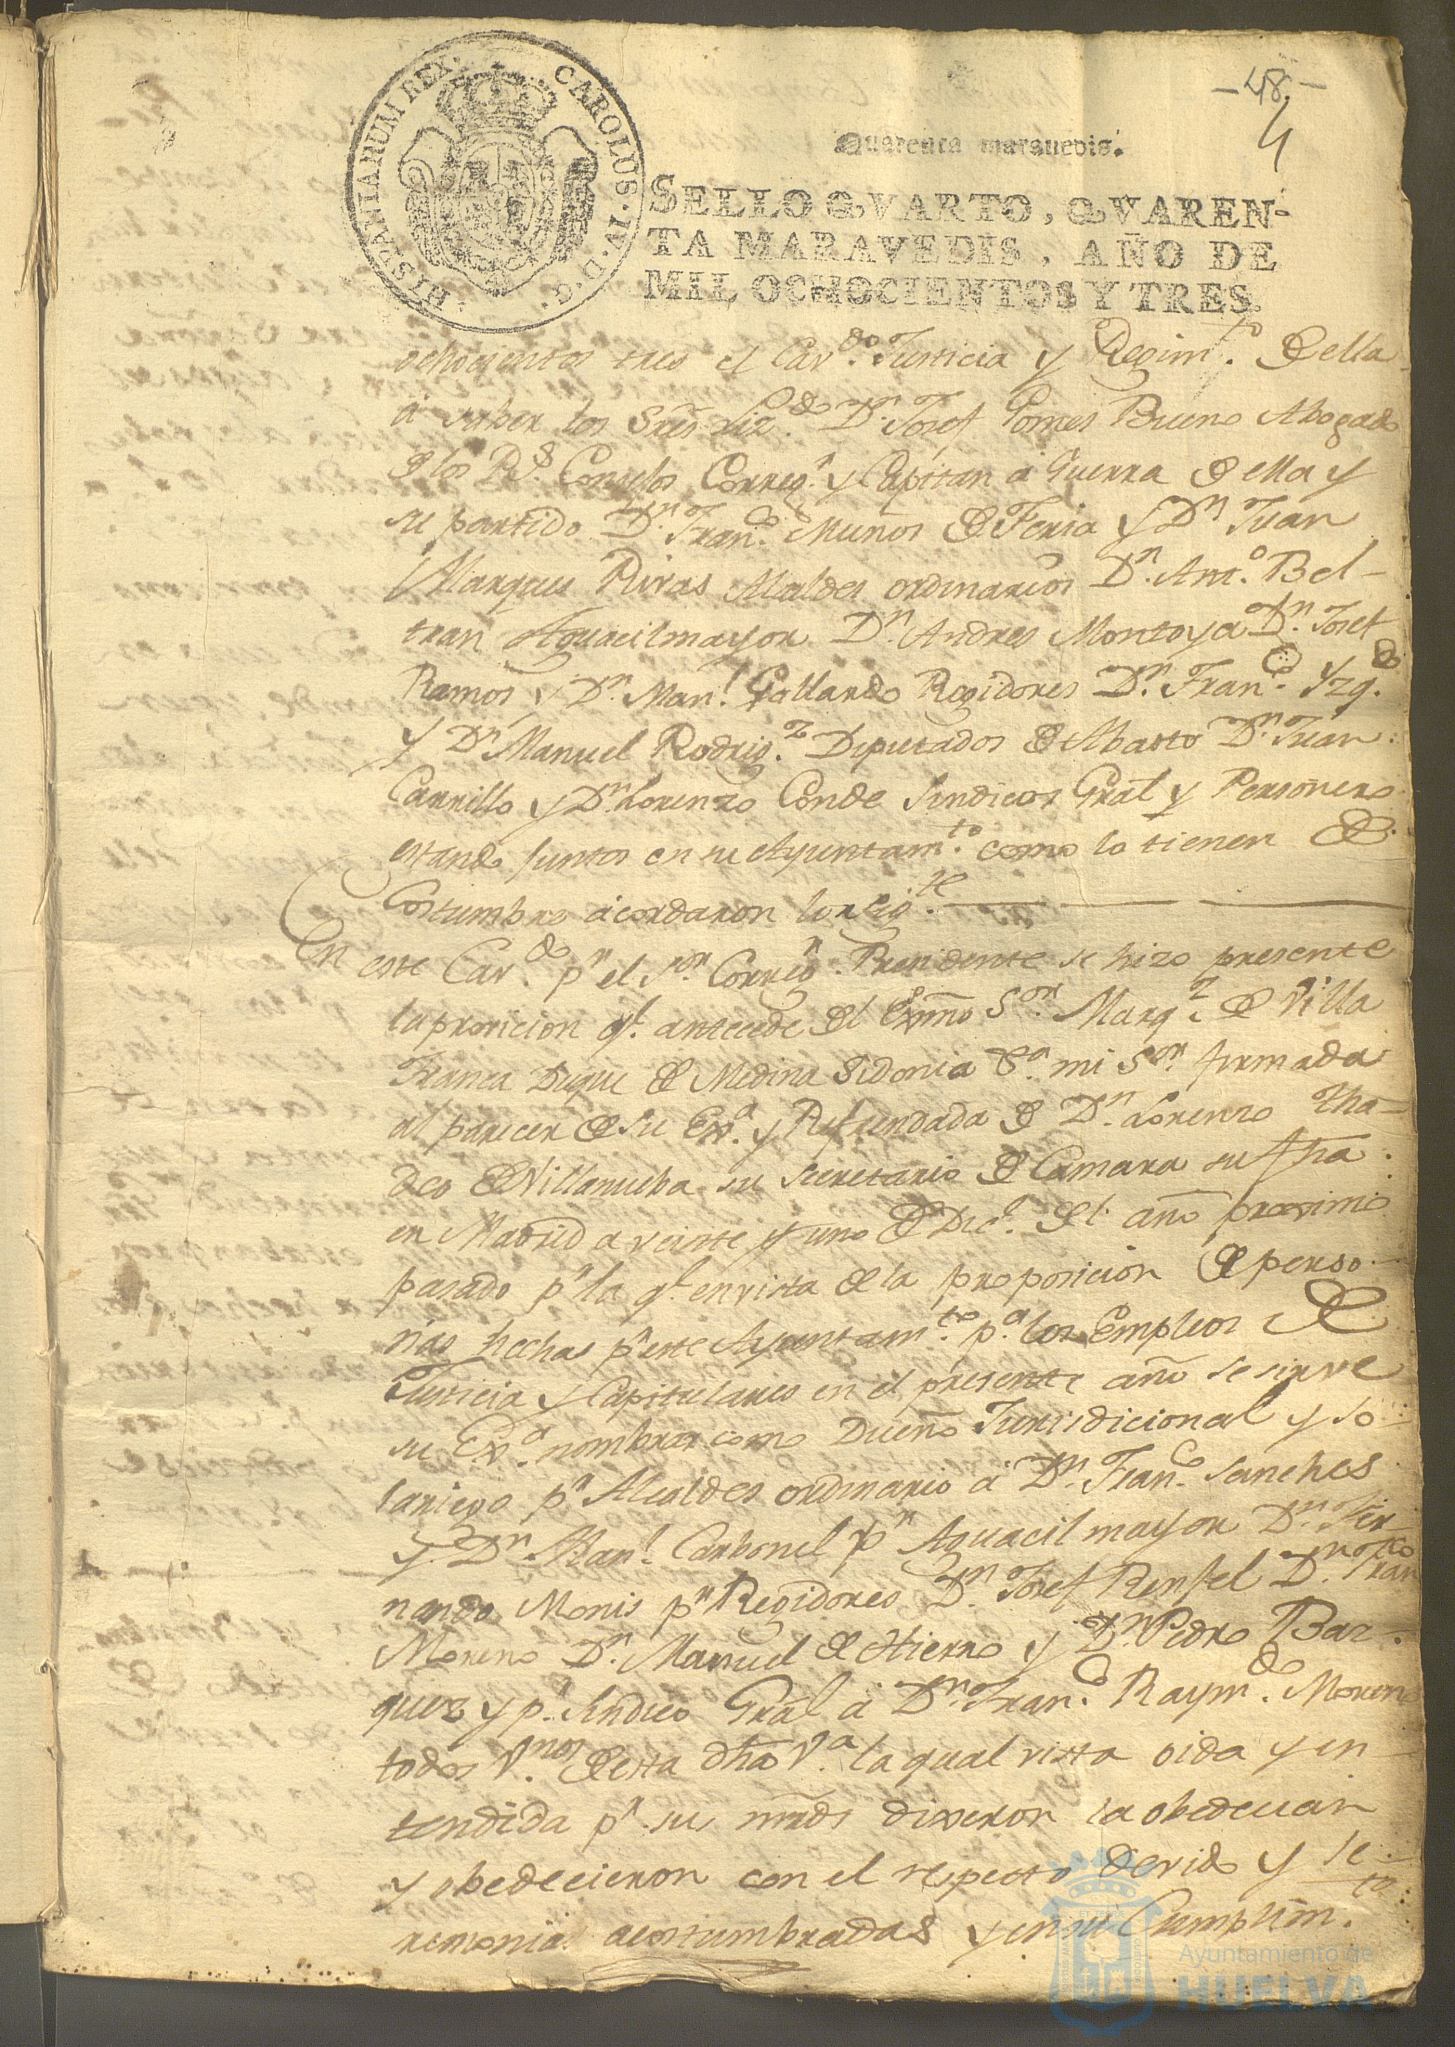 -48-
4
HISPANIARUM REX. CAROLUS. IV. D. G.
Quarenta maravedis.
SELLO QVARTO, QVAREN-
TA MARAVEDIS, AÑO DE
MIL OCHOCIENTOS Y TRES.
ochocientos tres el Cav.do Justicia y Regim.to de ella
a saber los Sres Liz.do D.n Josef Gomes Bueno Abogado
de los R.s Consejos Correg.r y Capitan a Guerra de ella y
su partido D.n Fran.co Muños de Feria y D.n Juan
Marques Rivas Alcaldes ordinarios D.n Ant.o Bel-
tran Aguacil mayor D.n Andres Montoya D.n Josef
Ramos y D.n Man.l Gallardo Regidores D.n Fran.co Yzq.do
y D.n Manuel Rodrig.z Diputados de Abasto D.n Juan
Carrillo y D.n Lorenzo Conde Sindicos Gral y Personero
estando juntos en su Ayuntam.to como lo tienen de
Costumbre acordaron lo sig.te
En este Cav.do p.r el S.or Correg.r Presidente se hizo presente
la provicion q.e antecede del Exmo S.or Marq.z de Villa
Franca Duque de Medina Sidonia &.a mi S.or firmada
al parecer de su Ex.a y Refrendada de D.n Lorenzo Tha-
deo de Villanueba su secretario de Camara su fha
en Madrid a veinte y uno de Dic.e del año proximo
pasado p.r la q.e en vista de la proposicion de perso-
nas hechas p.r este Ayuntam.to p.a los Empleos de
Justicia y Capitulares en el presente año se sirve
su Ex.a nombrar como Dueño Jurisdicional y so-
lariego p.r Alcaldes ordinario a D.n Fran.co Sanches
y D.n Man.l Carbonel p.r Aguacil mayor D.n Fer-
nando Monis p.r Regidores D.n Josef D.n Fran.co
Moreno D.n Manuel de Hierro y D.n Pedro Baz-
quez y p.r Sindico Gral a D.n Fran.co Raym.do Moreno
todos V.nos de esta dha V.a la qual vista oida y en-
tendida p.r sus mrds dixeron la obedecian
y obedecieron con el respecto devido y se-
remonias acostumbradas y en su Cumplim.to
Ayuntamiento de
HUELVA